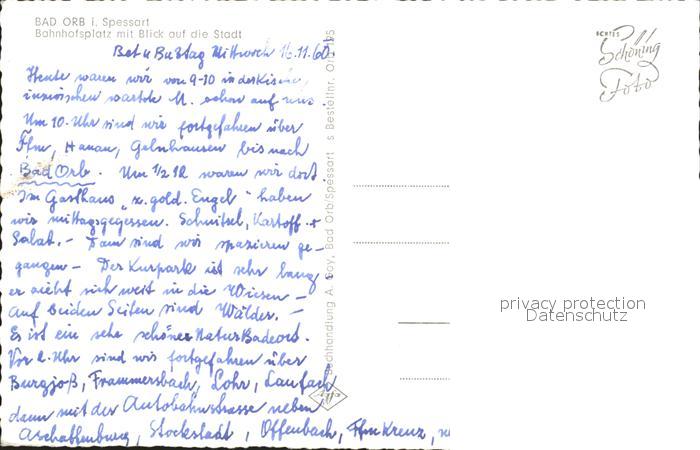 BAD ORB i. Spessart
Bahnhofsplatz mit Blick auf die Stadt
Bet u Bußtag Mittwoch 16.11.60
Heute waren wir von 9-10 in der Kirche,
inzwischen wartete M. schon auf uns.
Um 10. Uhr sind wir fortgefahren über
Ffm, Hanau, Gelnhausen bis nach
Bad Orb. Um 1/2 12 waren wir dort.
Im Gasthaus „z. gold. Engel" haben
wir mittagsgegessen. Schnitzel, Kartoff. +
Salat. – Dann sind wir spazieren ge-
gangen – Der Kurpark ist sehr lang
er zieht sich weit in die Wiesen –
Auf beiden Seiten sind Wälder. –
Es ist ein sehr schöner Natur Badeort.
Vor 2. Uhr sind wir fortgefahren über
Burgjoß, Frammersbach, Lohr, Laufach
dann mit der Autobahnstrasse neben
Aschaffenburg, Stockstadt, Offenbach, Ffm Kreuz,
Buchhandlung A. Goy, Bad Orb/Spessart
s Bestellnr. Orb
ECHTES
Schöning
Foto
Agfa
privacy protection
Datenschutz